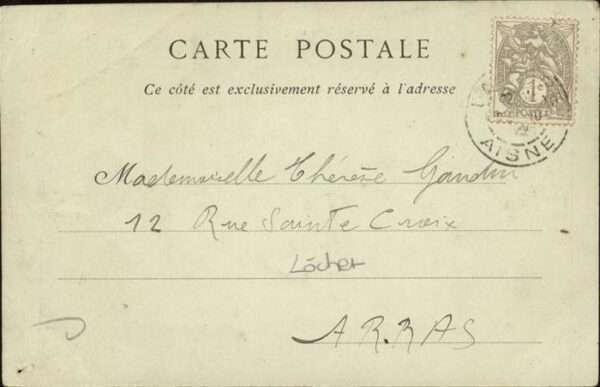 CARTE POSTALE
Ce côté est exclusivement réservé à l'adresse
AISNE
Mademoiselle Thérèse
12 Rue Sainte Croix
ARRAS